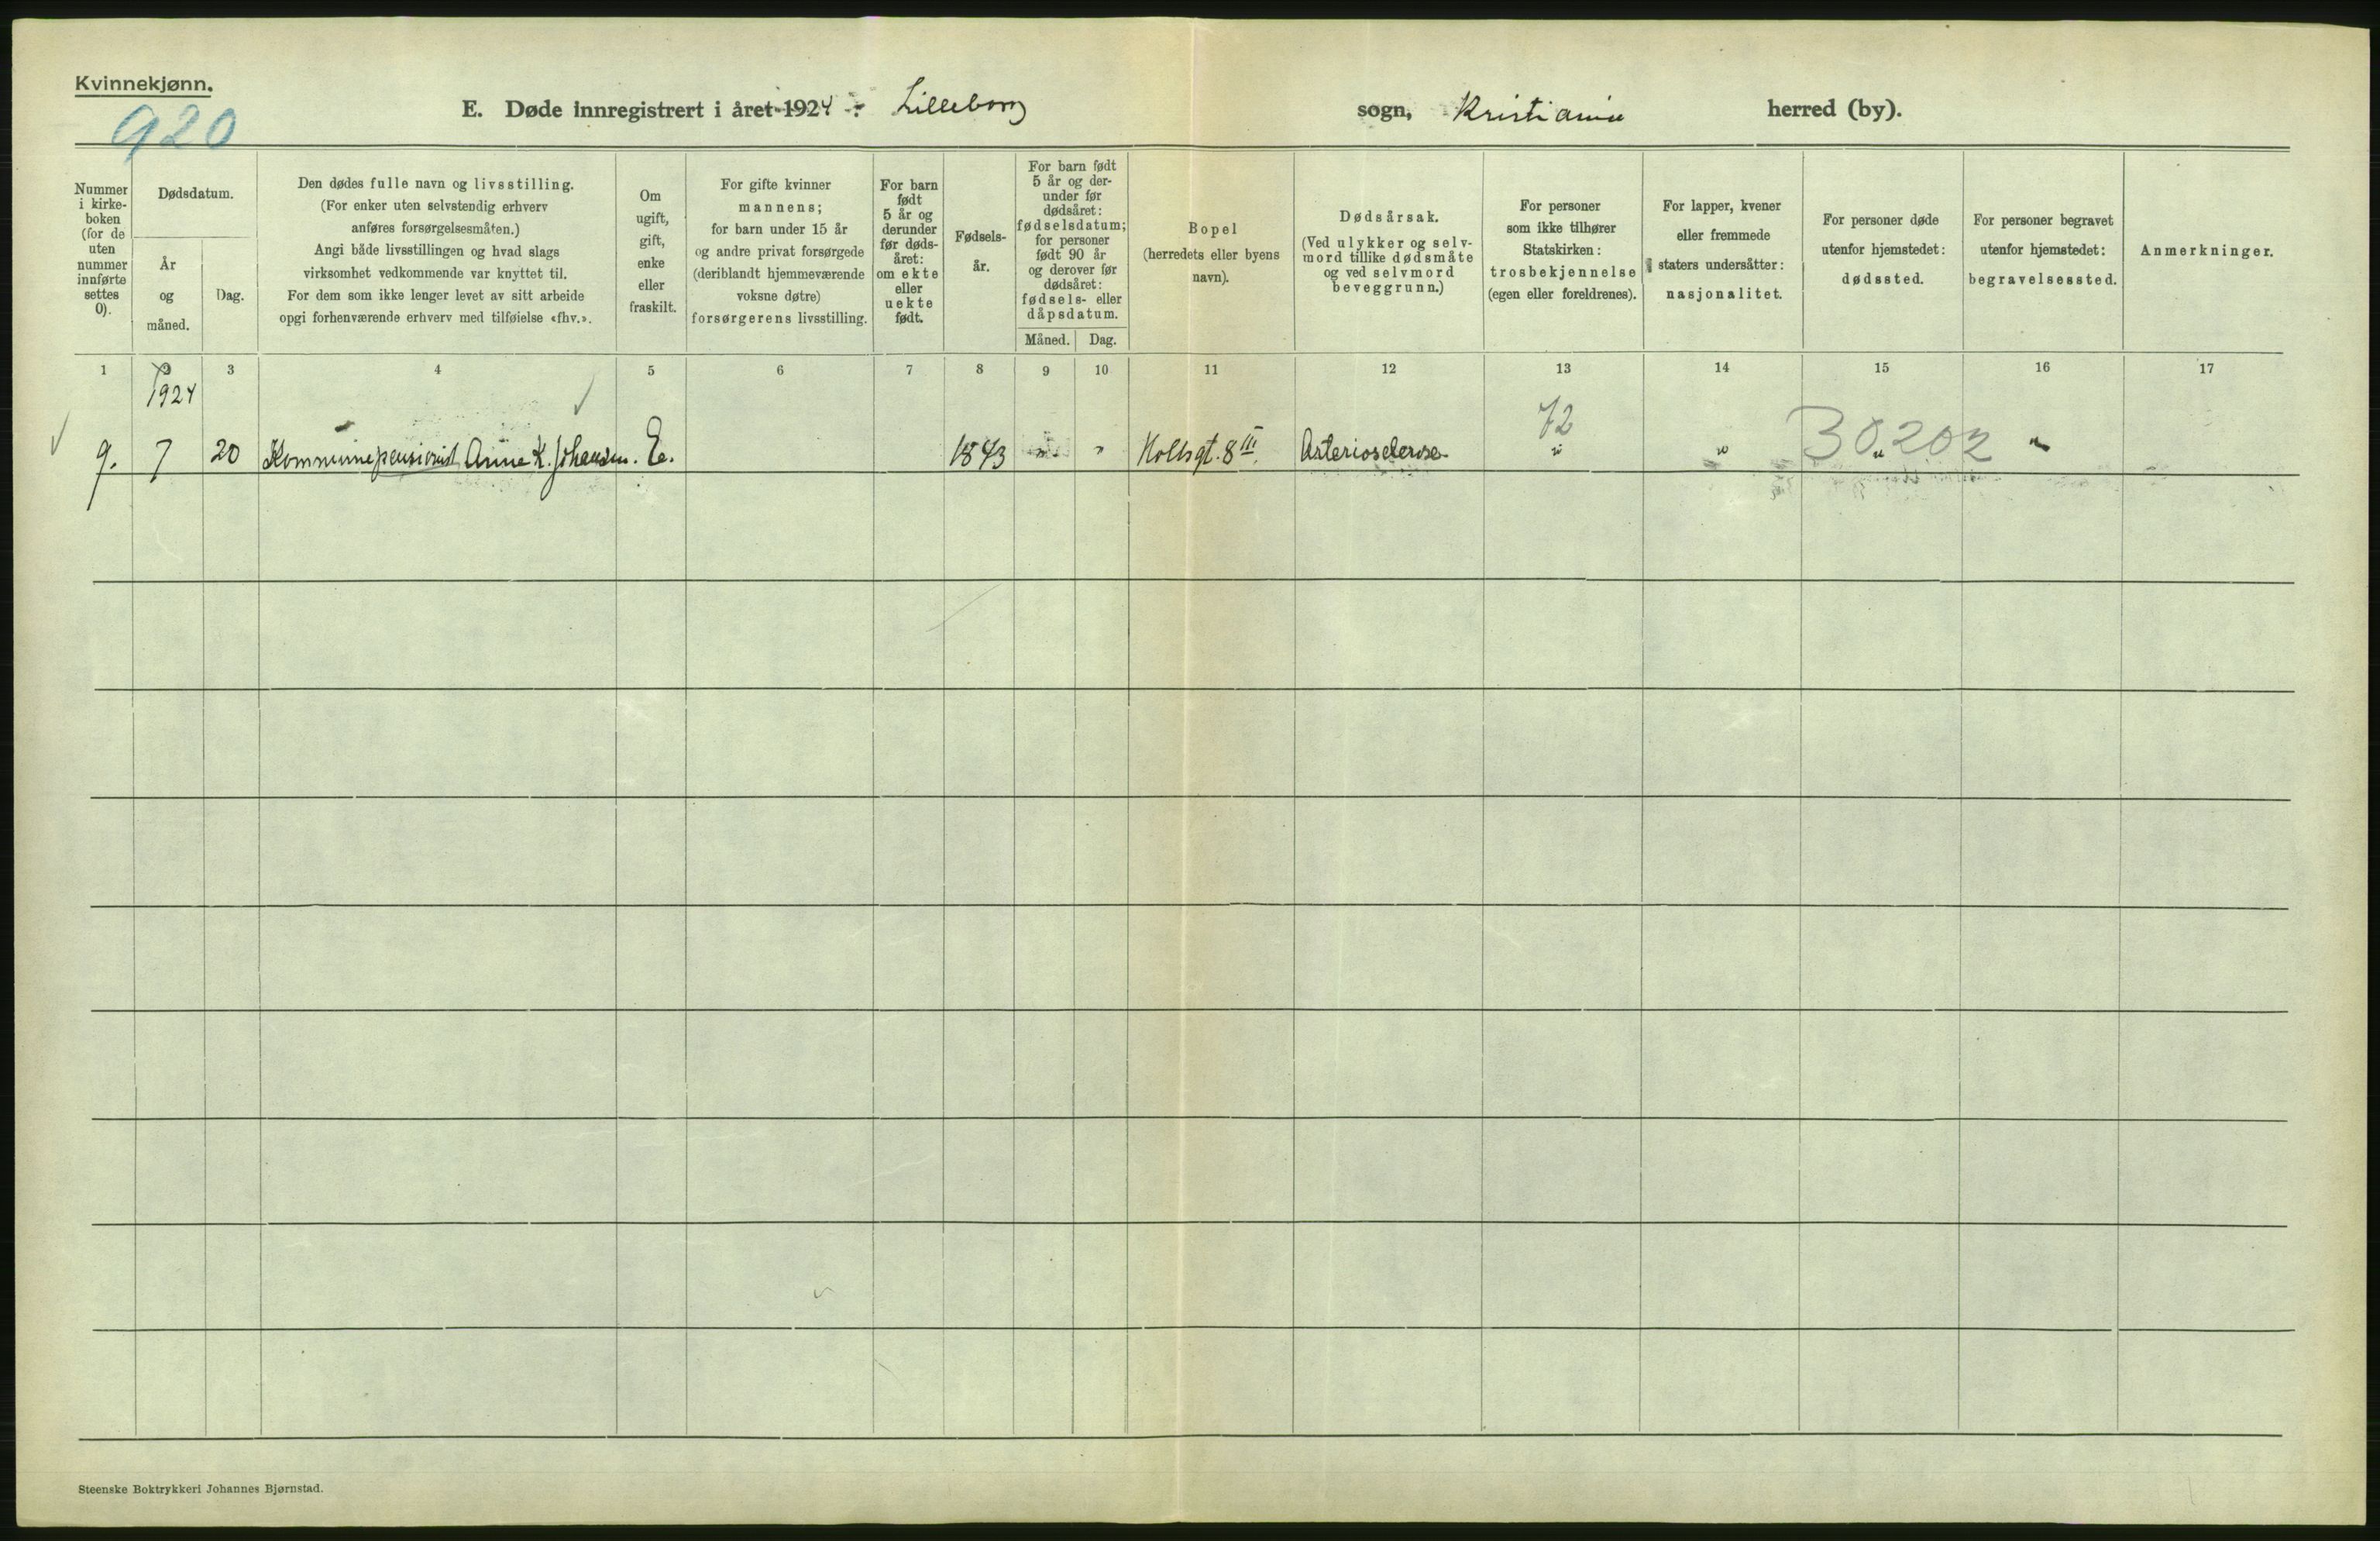 Kvinnekjønn.
920
E. Døde innregistrert i året 1924 : Lilleborg sogn, Kristiania herred (by).
Nummer i kirkeboken (for de uten nummer innførte settes 0).
Dødsdatum.
År og måned.
Dag.
Den dødes fulle navn og livsstilling.
(For enker uten selvstendig erhverv
anføres forsørgelsesmåten.)
Angi både livsstillingen og hvad slags
virksomhet vedkommende var knyttet til.
For dem som ikke lenger levet av sitt arbeide
opgi forhenværende erhverv med tilføielse «fhv.».
Om
ugift,
gift,
enke
eller
fraskilt.
For gifte kvinner
mannens;
for barn under 15 år
og andre privat forsørgede
(deriblandt hjemmeværende
voksne døtre)
forsørgerens livsstilling.
For barn
født
5 år og
derunder
før døds-
året:
om ekte
eller
uekte
født.
Fødsels-
år.
For barn født
5 år og der-
under før
dødsåret:
fødselsdatum;
for personer
født 90 år
og derover før
dødsåret:
fødsels- eller
dåpsdatum.
Måned. Dag.
Bopel
(herredets eller byens
navn).
Dødsårsak.
(Ved ulykker og selv-
mord tillike dødsmåte
og ved selvmord
beveggrunn.)
For personer
som ikke tilhører
Statskirken:
trosbekjennelse
(egen eller foreldrenes).
For lapper, kvener
eller fremmede
staters undersåtter:
nasjonalitet.
For personer døde
utenfor hjemstedet:
dødssted.
For personer begravet
utenfor hjemstedet:
begravelsessted.
Anmerkninger.
1 2 3 4 5 6 7 8 9 10 11 12 13 14 15 16 17
1924
72
9. 7 20 Kommunepensionist Anne K. Johansen. E. 1843 " " Holtsgt. 8 III. Arteriosclerose " " " 30.202 "
Steenske Boktrykkeri Johannes Bjørnstad.